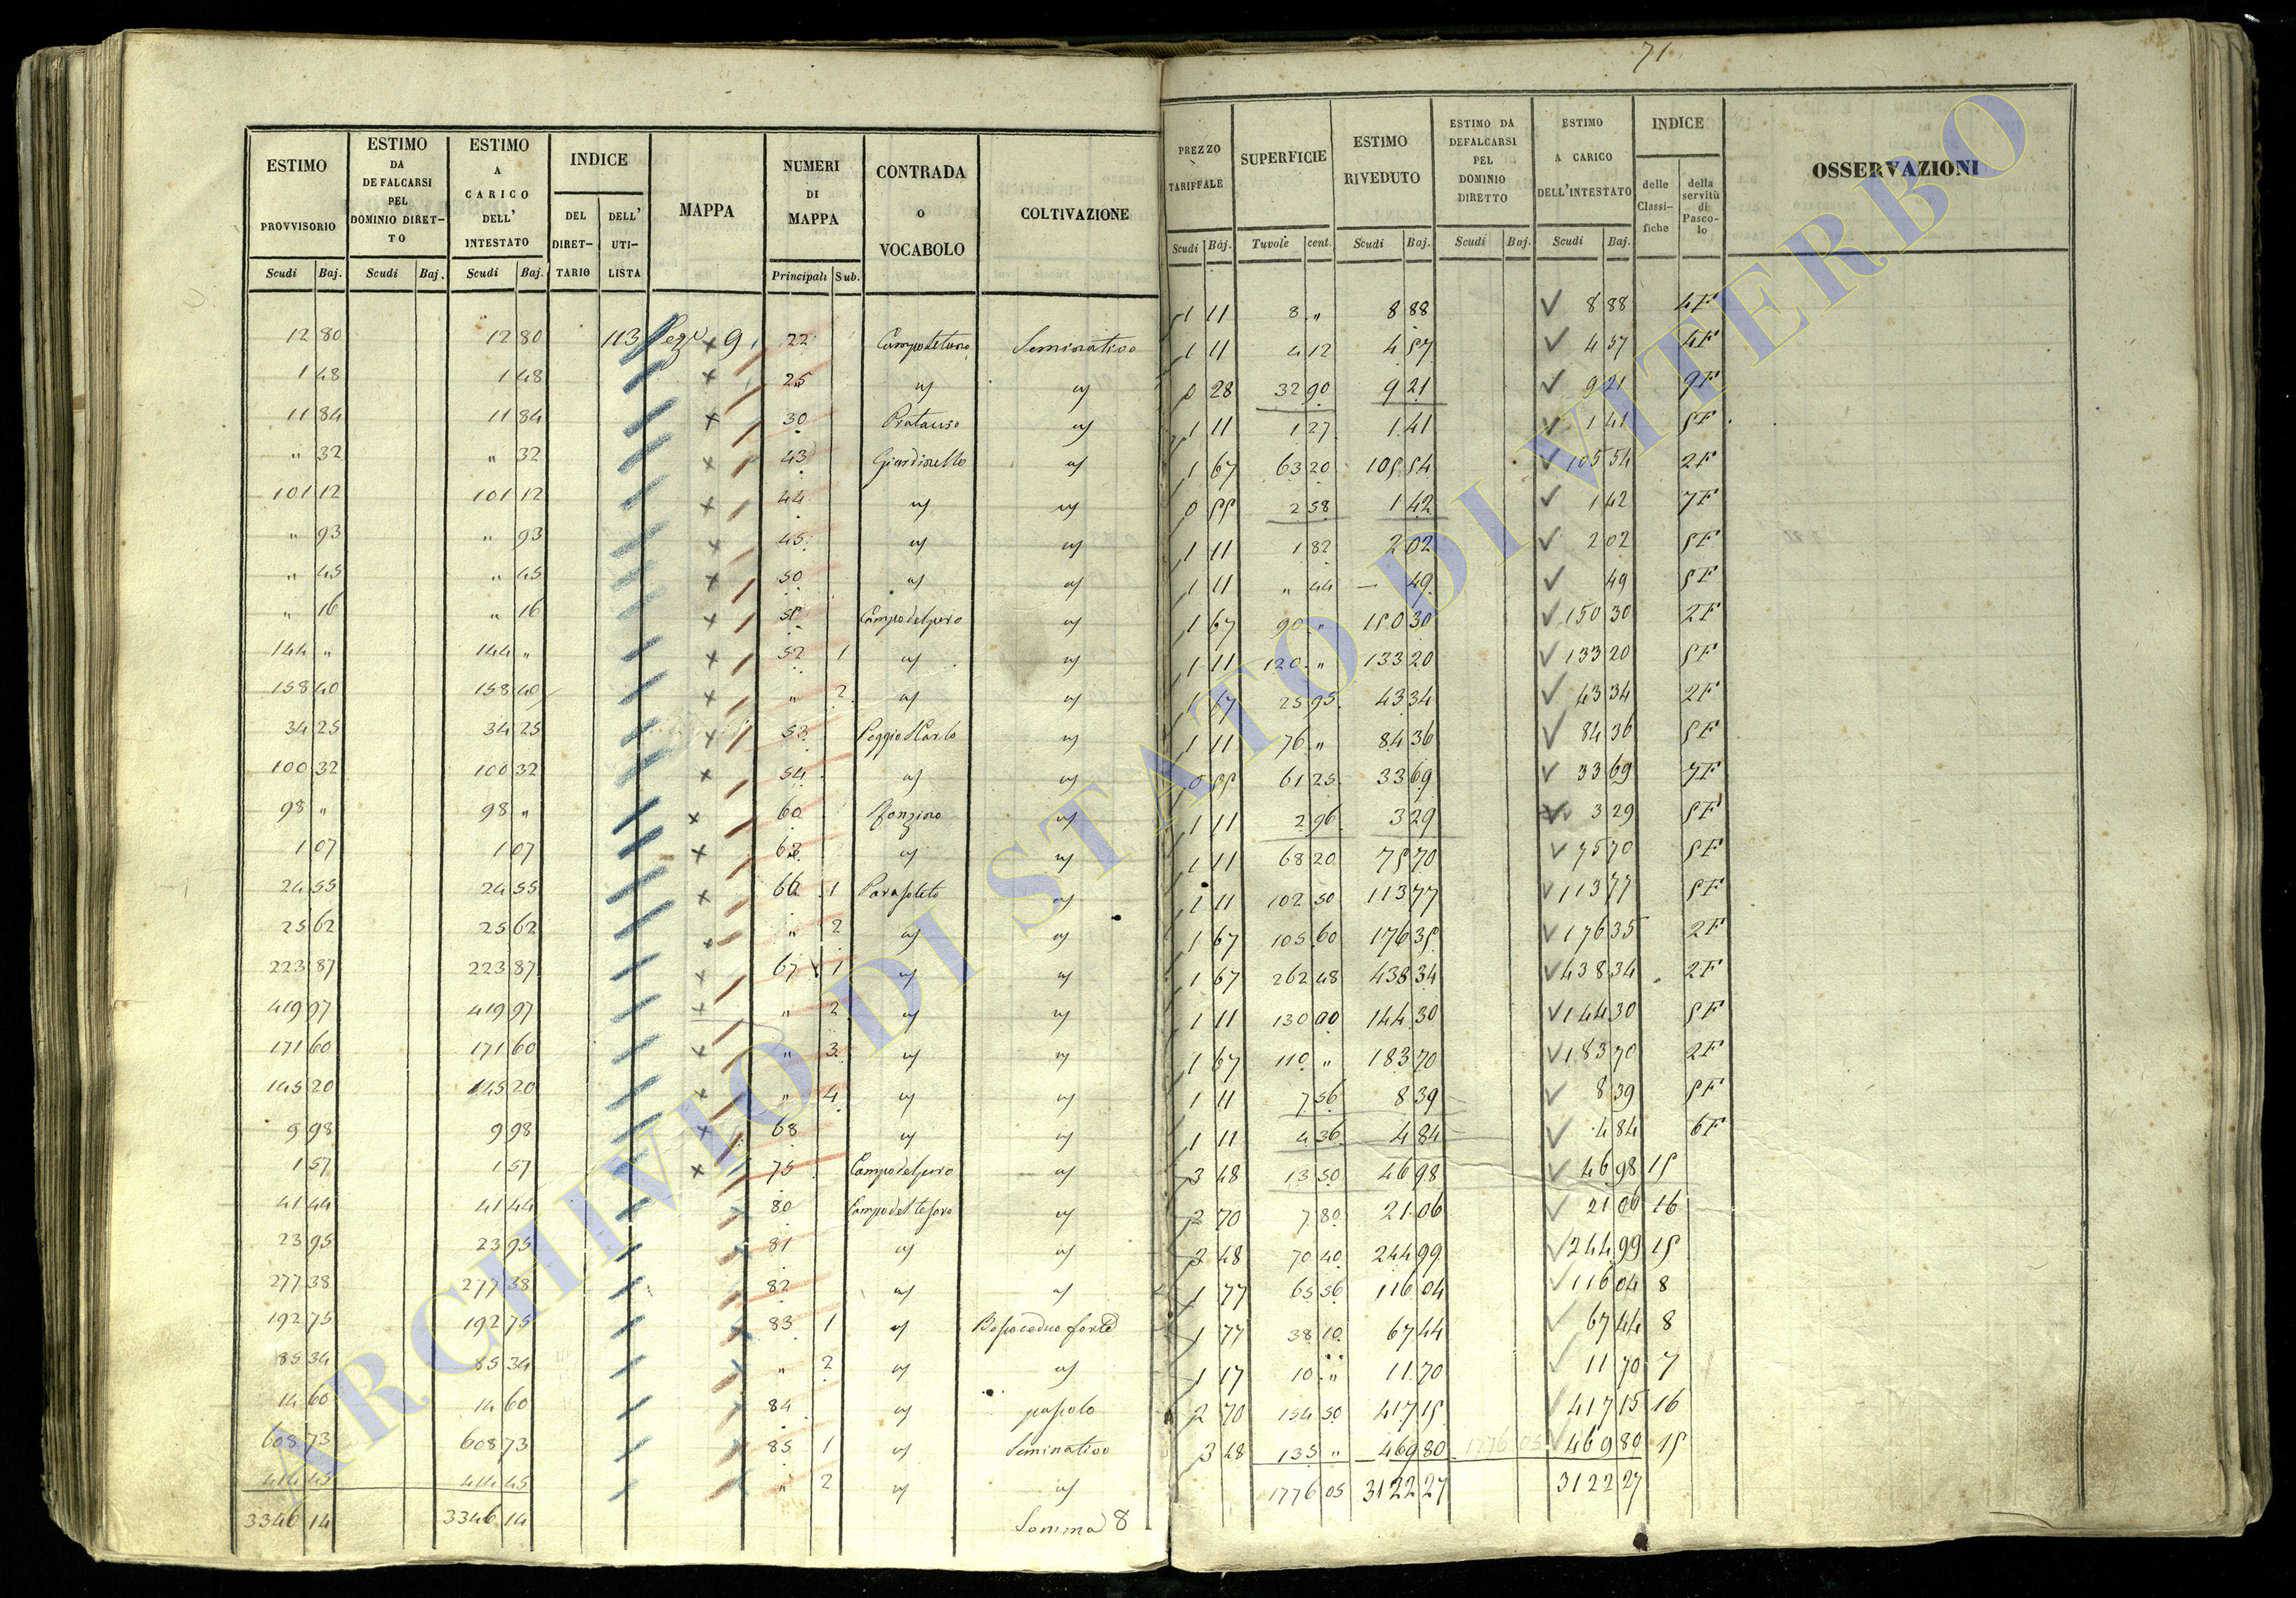 71
ESTIMO PROVVISORIO Scudi Baj. | ESTIMO DA DEFALCARSI PEL DOMINIO DIRETTO Scudi Baj. | ESTIMO A CARICO DELL' INTESTATO Scudi Baj. | INDICE DEL DIRETTARIO | DELL' UTILISTA | MAPPA | NUMERI DI MAPPA Principali Sub. | CONTRADA O VOCABOLO | COLTIVAZIONE
12 80 12 80 113 9 22 Seminativo
1 48 1 48 × 25 uj uj
11 84 11 84 × 30 uj
" 32 " 32 × 43 Giardinello uj
101 12 101 12 × 44 uj uj
" 93 " 93 × 45 uj uj
" 45 " 45 × 50 uj uj
" 16 " 16 × 51 Campo del pero uj
144 " 144 " × 52 1 uj uj
158 40 158 40 × " 2 uj uj
34 25 34 25 × 53 uj
100 32 100 32 × 54 uj uj
98 " 98 " × 60 uj
1 07 1 07 × uj uj
24 55 24 55 × 66 1 uj
25 62 25 62 × " 2 uj uj
223 87 223 87 × 67 1 uj uj
419 97 419 97 × " 2 uj uj
171 60 171 60 × " 3 uj uj
145 20 145 20 × " 4 uj uj
9 98 9 98 × 68 uj uj
1 57 1 57 × 75 Campo del pero uj
41 44 41 44 × 80 uj
23 95 23 95 × 81 uj uj
277 38 277 38 82 uj uj
192 75 192 75 83 1 uj Bosco ceduo forte
85 34 85 34 " 2 uj uj
14 60 14 60 84 uj pascolo
608 73 608 73 85 1 uj Seminativo
414 45 414 45 " 2 uj uj
3346 14 3346 14 Somma 8
PREZZO TARIFFALE Scudi Baj. | SUPERFICIE Tavole cent. | ESTIMO RIVEDUTO Scudi Baj. | ESTIMO DA DEFALCARSI PEL DOMINIO DIRETTO Scudi Baj. | ESTIMO A CARICO DELL'INTESTATO Scudi Baj. | INDICE delle Classifiche | della servitù di Pascolo | OSSERVAZIONI
1 11 8 " 8 88 8 88 4F
1 11 4 12 4 57 4 57 4F
0 28 32 90 9 21 9 21 9F
1 11 1 27 1 41 1 41 5F
1 67 63 20 105 54 105 54 2F
0 55 2 58 1 42 1 42 7F
1 11 1 82 2 02 2 02 5F
1 11 " 44 — 49 49 5F
1 67 90 " 150 30 150 30 2F
1 11 120 " 133 20 133 20 5F
1 67 25 95 43 34 43 34 2F
1 11 76 " 84 36 84 36 5F
0 55 61 25 33 69 33 69 7F
1 11 2 96 3 29 3 29 5F
1 11 68 20 75 70 75 70 5F
1 11 102 50 113 77 113 77 5F
1 67 105 60 176 35 176 35 2F
1 67 262 48 438 34 438 34 2F
1 11 130 00 144 30 144 30 5F
1 67 110 " 183 70 183 70 2F
1 11 7 56 8 39 8 39 5F
1 11 4 36 4 84 4 84 6F
3 48 13 50 46 98 46 98 15
2 70 7 80 21 06 21 06 16
3 48 70 40 244 99 244 99 15
1 77 65 56 116 04 116 04 8
1 77 38 10 67 44 67 44 8
1 17 10 " 11 70 11 70 7
2 70 154 50 417 15 417 15 16
3 48 135 " 469 80 1776 05 469 80 15
1776 05 3122 27 3122 27
ARCHIVIO DI STATO DI VITERBO